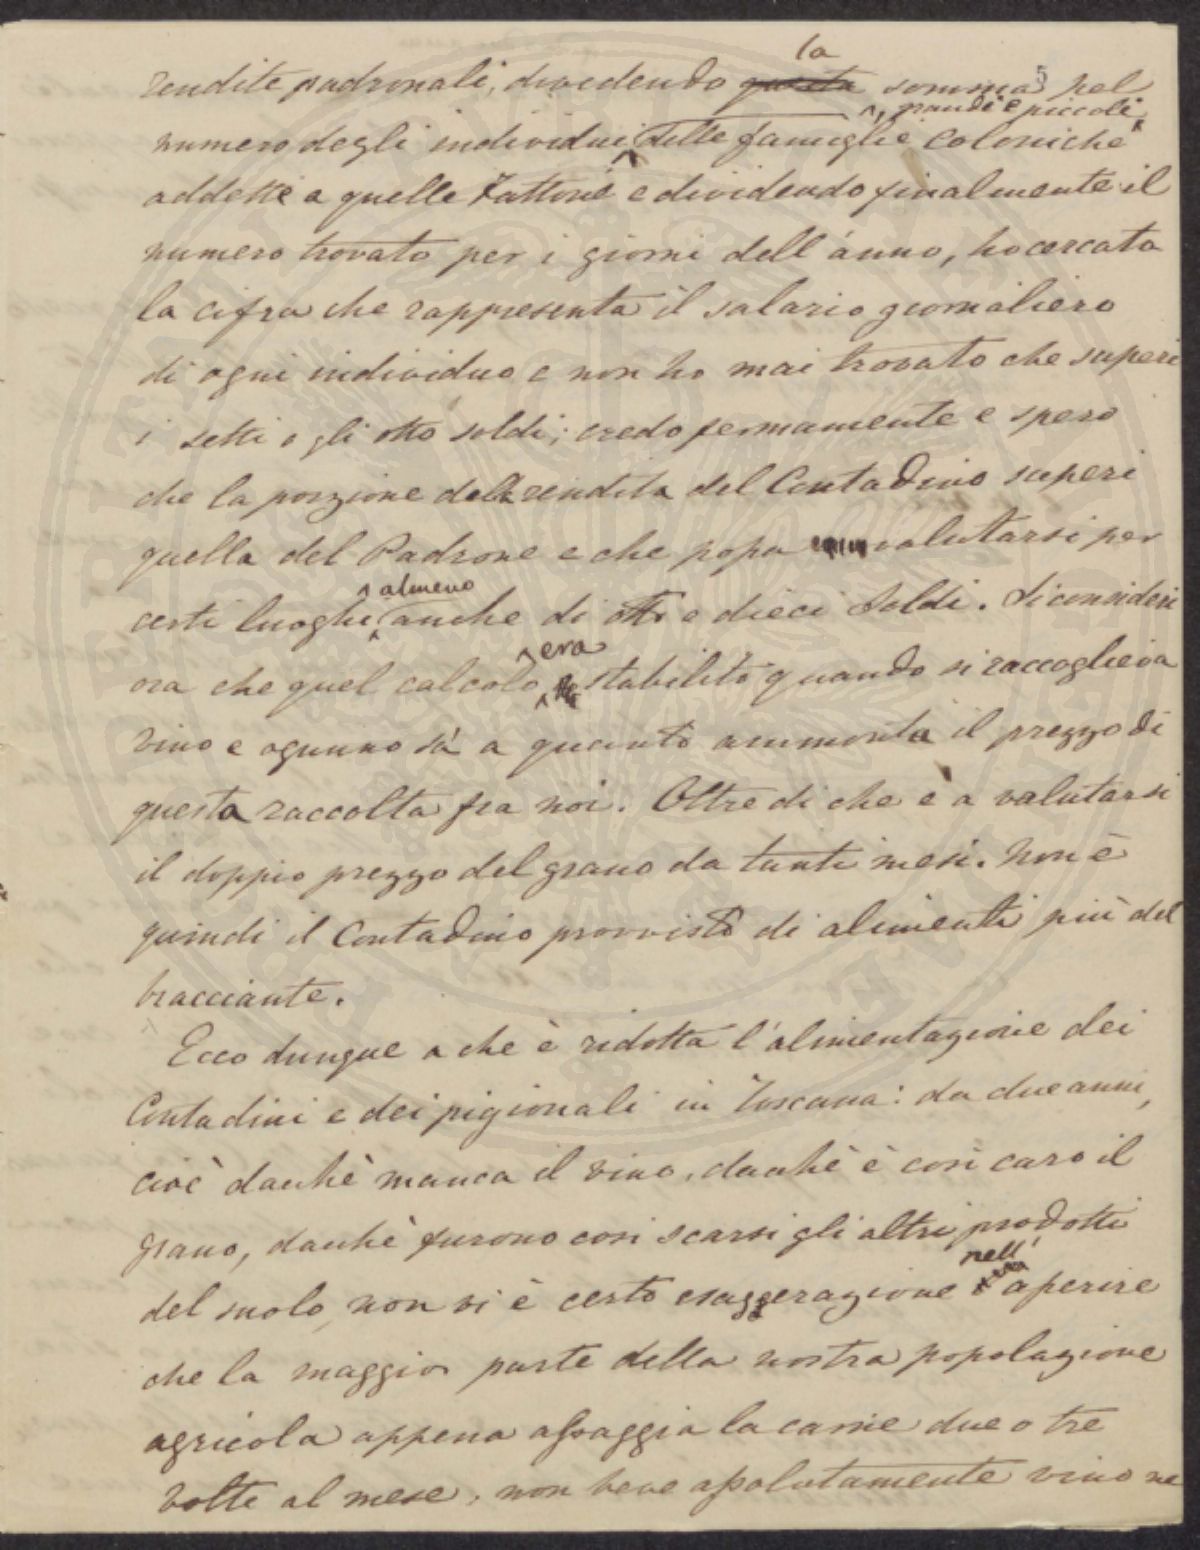 la
rendite padronali, dividendo questa somma pel
5
, grandi e piccoli,
numero degli individui delle famiglie coloniche
addette a quelle Fattorie e dividendo finalmente il
numero trovato per i giorni dell'anno, ho cercata
la cifra che rappresenta il salario giornaliero
di ogni individuo e non ho mai trovato che superi
i setti o gli otto soldi; credo fermamente e spero
che la porzione della rendita del Contadino superi
quella del Padrone e che possa valutarsi per
almeno
certi luoghi anche di otto e dieci soldi. Si consideri
era
ora che quel calcolo stabilito quando si raccoglieva
vino e ognuno sà a quanto ammonta il prezzo di
questa raccolta fra noi. Oltre di che è a valutarsi
il doppio prezzo del grano da tanti mesi. Non è
quindi il Contadino provvisto di alimenti più del
bracciante.
Ecco dunque a che è ridotta l'alimentazione dei
Contadini e dei pigionali in Toscana: da due anni,
cioè dacchè manca il vino, dacchè è così caro il
grano, dacchè furono così scarsi gli altri prodotti
nell'
del suolo, non vi è certo esaggerazione asserire
che la maggior parte della nostra popolazione
agricola appena assaggia la carne due o tre
volte al mese, non beve assolutamente vino ne